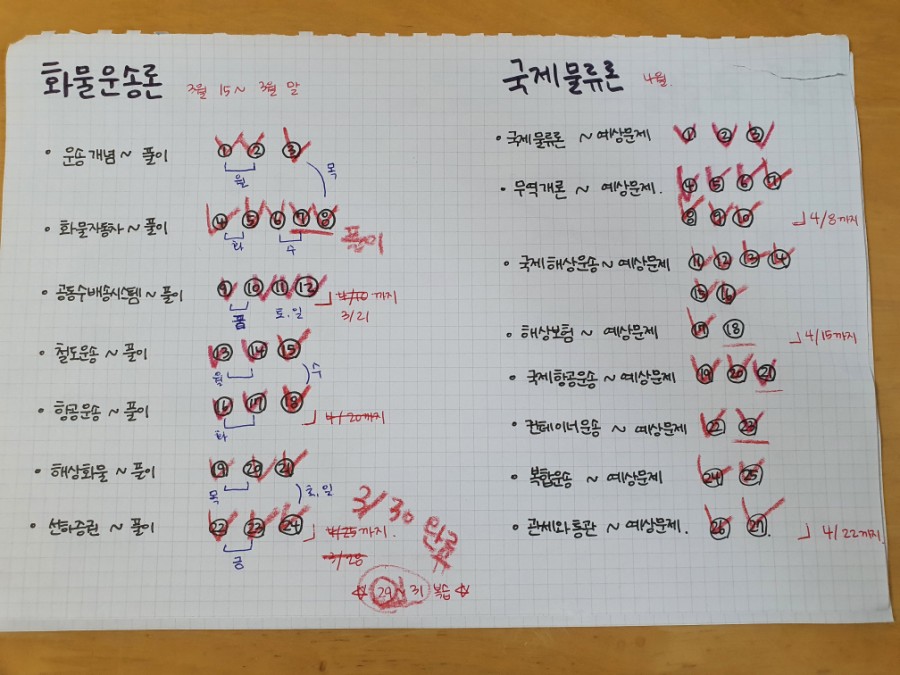 화물운송론 3월 15 ~ 3월 말
• 운송개념 ~ 풀이 ① ② ③
월 목
• 화물자동차 ~ 풀이 ④ ⑤ ⑥ ⑦ ⑧ 풀이
화 수
• 공동수배송시스템 ~ 풀이 ⑨ ⑩ ⑪ ⑫ 4/10 까지
토.일 3/21
• 철도운송 ~ 풀이 ⑬ ⑭ ⑮
월 수
• 항공운송 ~ 풀이 ⑯ ⑰ ⑱ 4/20까지
화
• 해상화물 ~ 풀이 ⑲ ⑳ ㉑
목 토.일
• 선하증권 ~ 풀이 ㉒ ㉓ ㉔ 4/25까지.
금 3/28
3/30 완료
☆ 29 ~ 31 복습 ☆
국제물류론 4월.
• 국제물류론 ~ 예상문제 ① ② ③
• 무역개론 ~ 예상문제. ④ ⑤ ⑥ ⑦
⑧ ⑨ ⑩ 4/8까지
• 국제해상운송 ~ 예상문제 ⑪ ⑫ ⑬ ⑭
⑮ ⑯
• 해상보험 ~ 예상문제 ⑰ ⑱ 4/15까지
• 국제항공운송 ~ 예상문제 ⑲ ⑳ ㉑
• 컨테이너운송 ~ 예상문제 ㉒ ㉓
• 복합운송 ~ 예상문제 ㉔ ㉕
• 관세와통관 ~ 예상문제. ㉖ ㉗. 4/22까지.